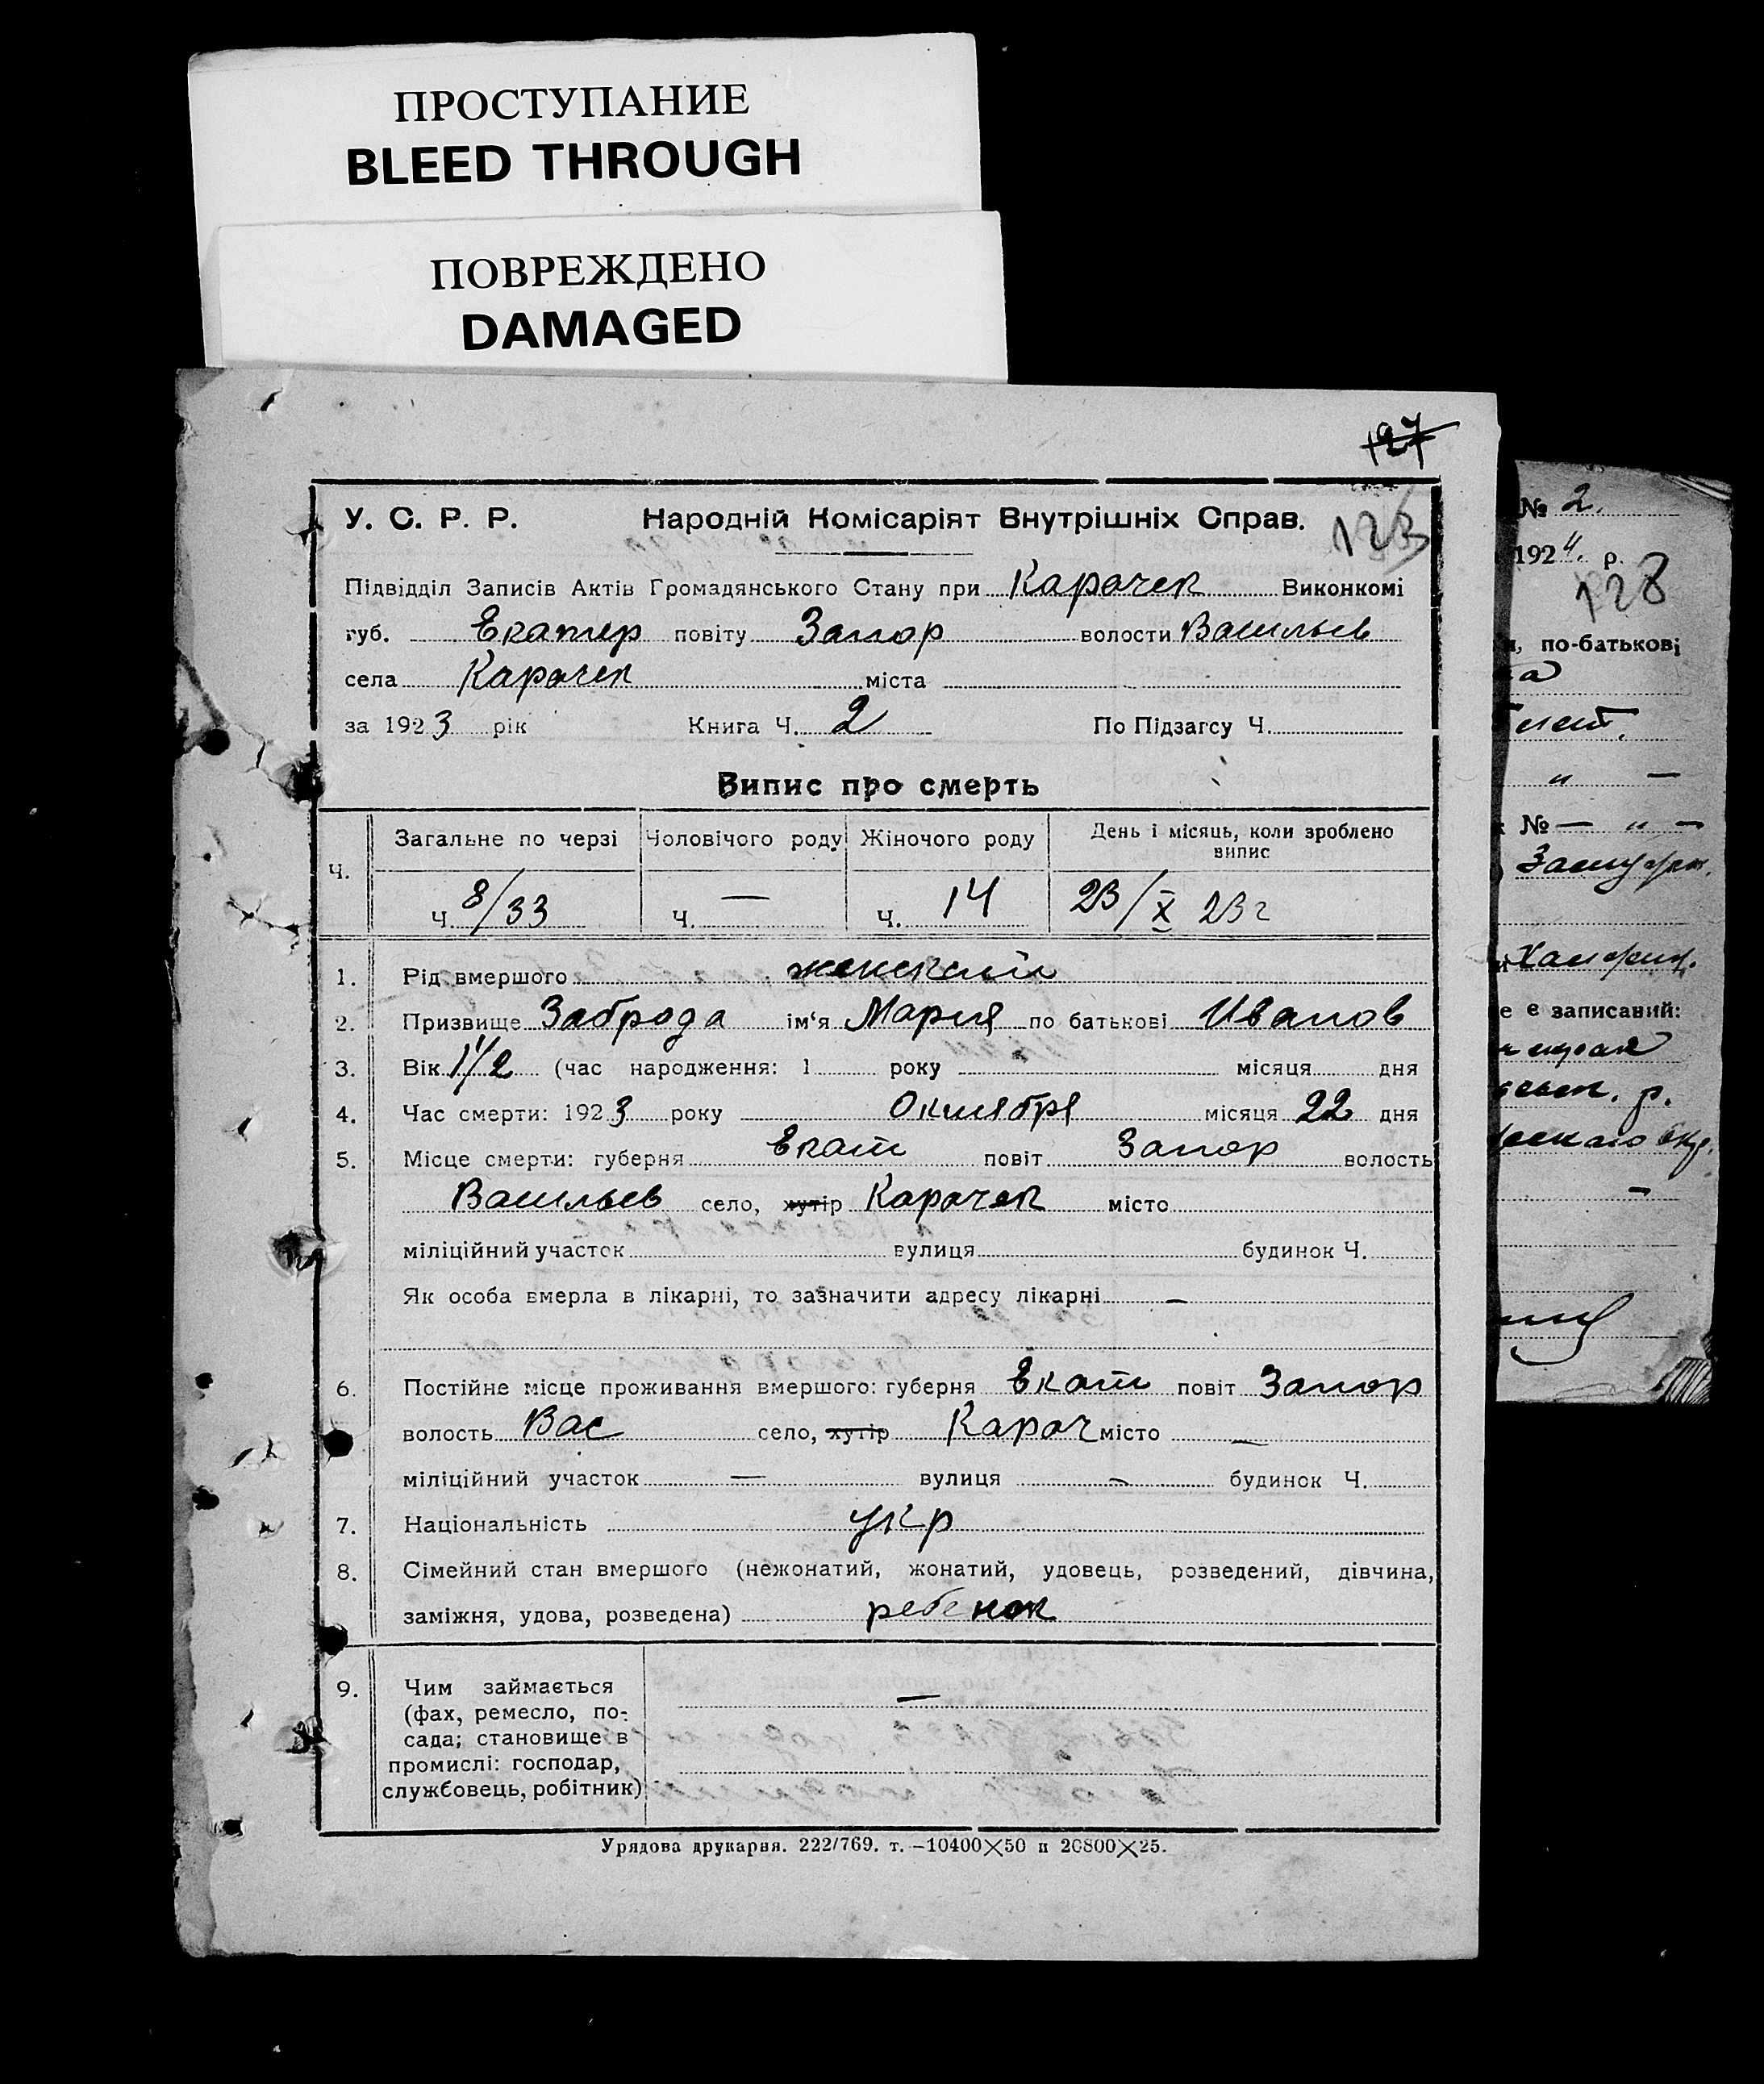 ПРОСТУПАНИЕ
BLEED THROUGH
ПОВРЕЖДЕНО
DAMAGED
127
У. С. Р. Р. Народній Комісаріят Внутрішніх Справ. 123
Підвідділ Записів Актів Громадянського Стану при Карачек Виконкомі
губ. Екатер повіту Запор волости Васильев
села Карачек міста
за 1923 рік Книга Ч. 2 По Підзагсу Ч.
Випис про смерть
Ч. Загальне по черзі Чоловічого роду Жіночого роду День і місяць, коли зроблено випис
Ч. 8/33 Ч. — Ч. 14 23/X 23 г
1. Рід вмершого женский
2. Призвище Заброда ім‘я Мария по батькові Иванов
3. Вік 1 1/2 (час народження: 1 року місяця дня
4. Час смерти: 1923 року Октября місяця 22 дня
5. Місце смерти: губерня Екат повіт Запор волость
Васильев село, хутір Карачек місто
міліційний участок вулиця будинок Ч.
Як особа вмерла в лікарні, то зазначити адресу лікарні —
6. Постійне місце проживання вмершого: губерня Екат повіт Запор
волость Вас село, хутір Карач місто —
міліційний участок — вулиця — будинок Ч.
7. Національність укр
8. Сімейний стан вмершого (нежонатий, жонатий, удовець, розведений, дівчина,
заміжня, удова, розведена) ребенок
9. Чим займається —
(фах, ремесло, по-
сада; становище в
промислі: господар,
службовець, робітник)
Урядова друкарня. 222/769. т. —10400×50 п 20800×25.
№ 2.
1924. р.
128
по-батькові
№ — „ —
е записаний:
р.